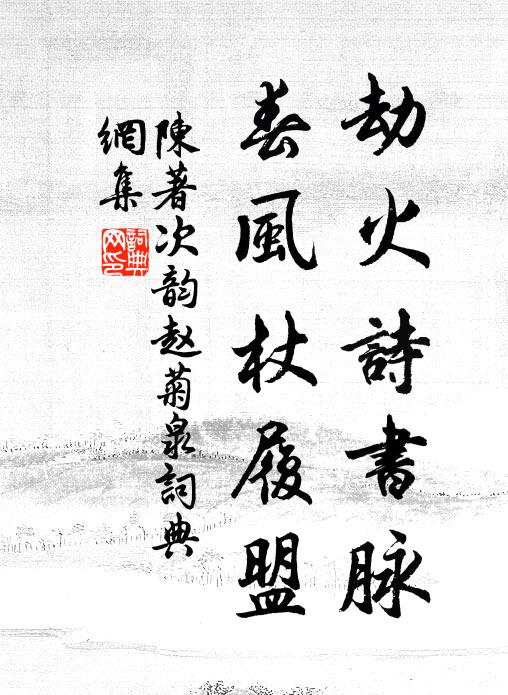 劫火詩書脉
春風杖履盟
陳著次韵赵菊泉詞典
網集
詞典网印